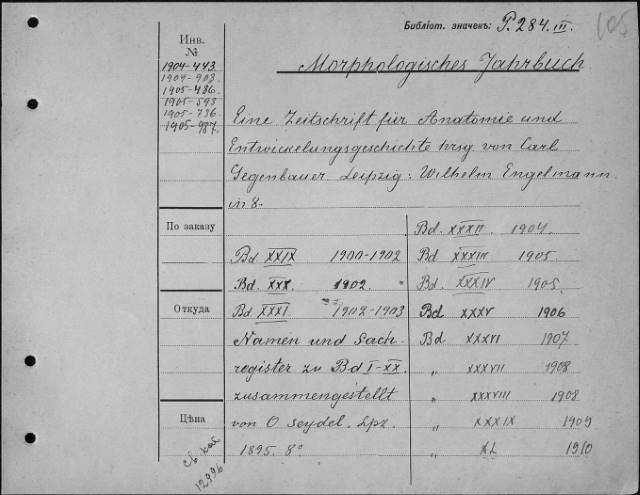 Библіот. значекъ: P. 284. III.
105
Инв.
№
1904-443
1904-903.
1905-486.
1905-593
1905-736
1905-987
Morphologisches Jahrbuch
Eine Zeitschrift für Anatomie und
Entwickelungsgeschichte hrsg. von Carl
Gegenbauer. Leipzig: Wilhelm Engelmann.
in 8-
По заказу
Bd. XXXII. 1904.
Bd XXIX 1900-1902
Bd XXXIII 1905
Bd. XXX. 1902.
Bd. XXXIV 1905.
Откуда
Bd XXXI. 1902-1903
Bd XXXV 1906
Namen und Sach-
Bd XXXVI 1907
register zu Bd I-XX.
" XXXVII 1908
zusammengestellt
" XXXVIII 1908
Цѣна
von O Seydel. Lpz.
" XXXIX 1909
1895. 8°
" XL 1910
12996